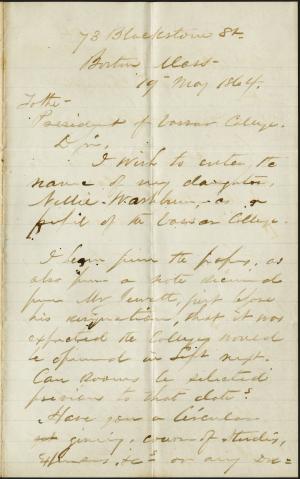 73 Blackstone St.
Boston Mass-
19th May 1864.
To the-
President of Vassar College.
D Sir,
I wish to enter, the
name of my daughter,
Nellie Washburn, as a
pupil of the Vassar College.
I learn from the papers, as
also from a note received
from Mr Jewett, just before
his resignation, that it was
expected the College would
be opened in Sept next.
Can rooms be selected
previous to that date?
Have you a Circular
giving, course of studies,
Expenses, &c- or any